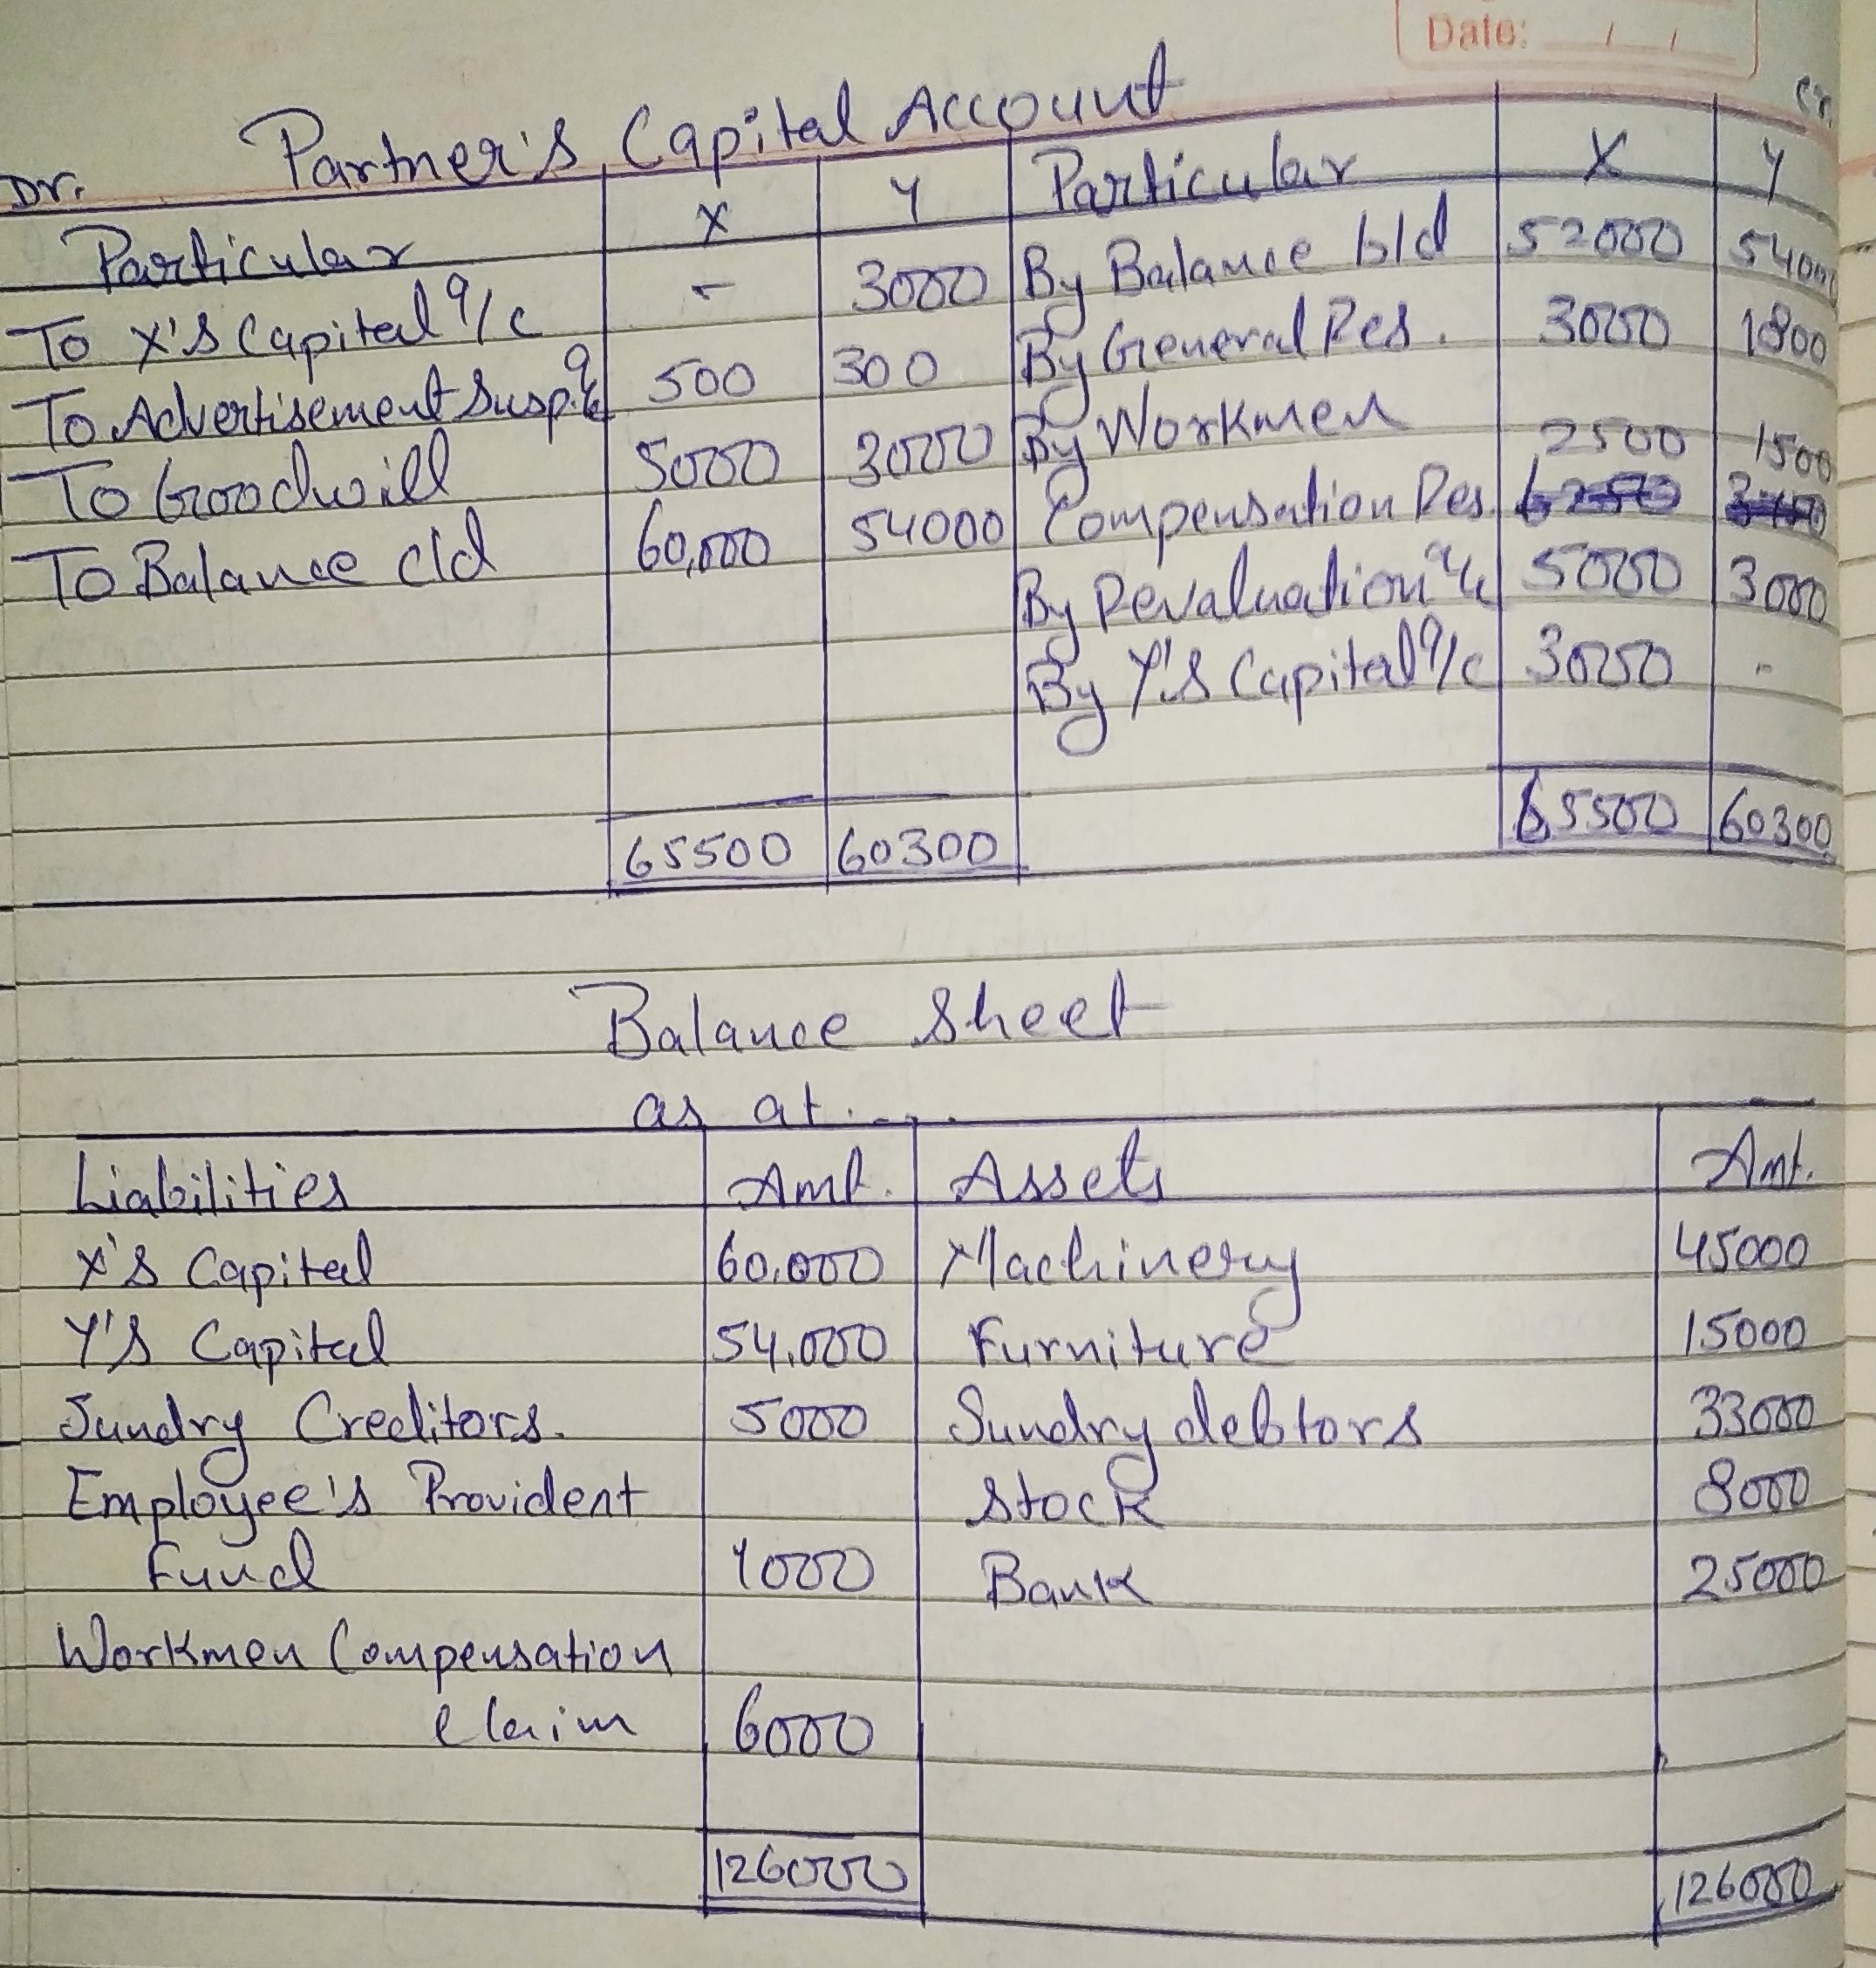 Date: / /
Partner's Capital Account
Dr. Cr.
Particular X Y Particular X Y
To X's Capital a/c - 3000 By Balance b/d 52000 54000
To Advertisement Susp. a/c 500 300 By General Res. 3000 1800
To Goodwill 5000 3000 By Workmen
Compensation Res. 2500 1500
To Balance c/d 60,000 54000 By Revaluation a/c 5000 3000
By Y's Capital a/c 3000 -
65500 60300 65500 60300
Balance Sheet
as at....
Liabilities Amt. Assets Amt.
X's Capital 60,000 Machinery 45000
Y's Capital 54,000 Furniture 15000
Sundry Creditors. 5000 Sundry debtors 33000
Employee's Provident Stock 8000
Fund 1000 Bank 25000
Workmen Compensation
claim 6000
126000 126000